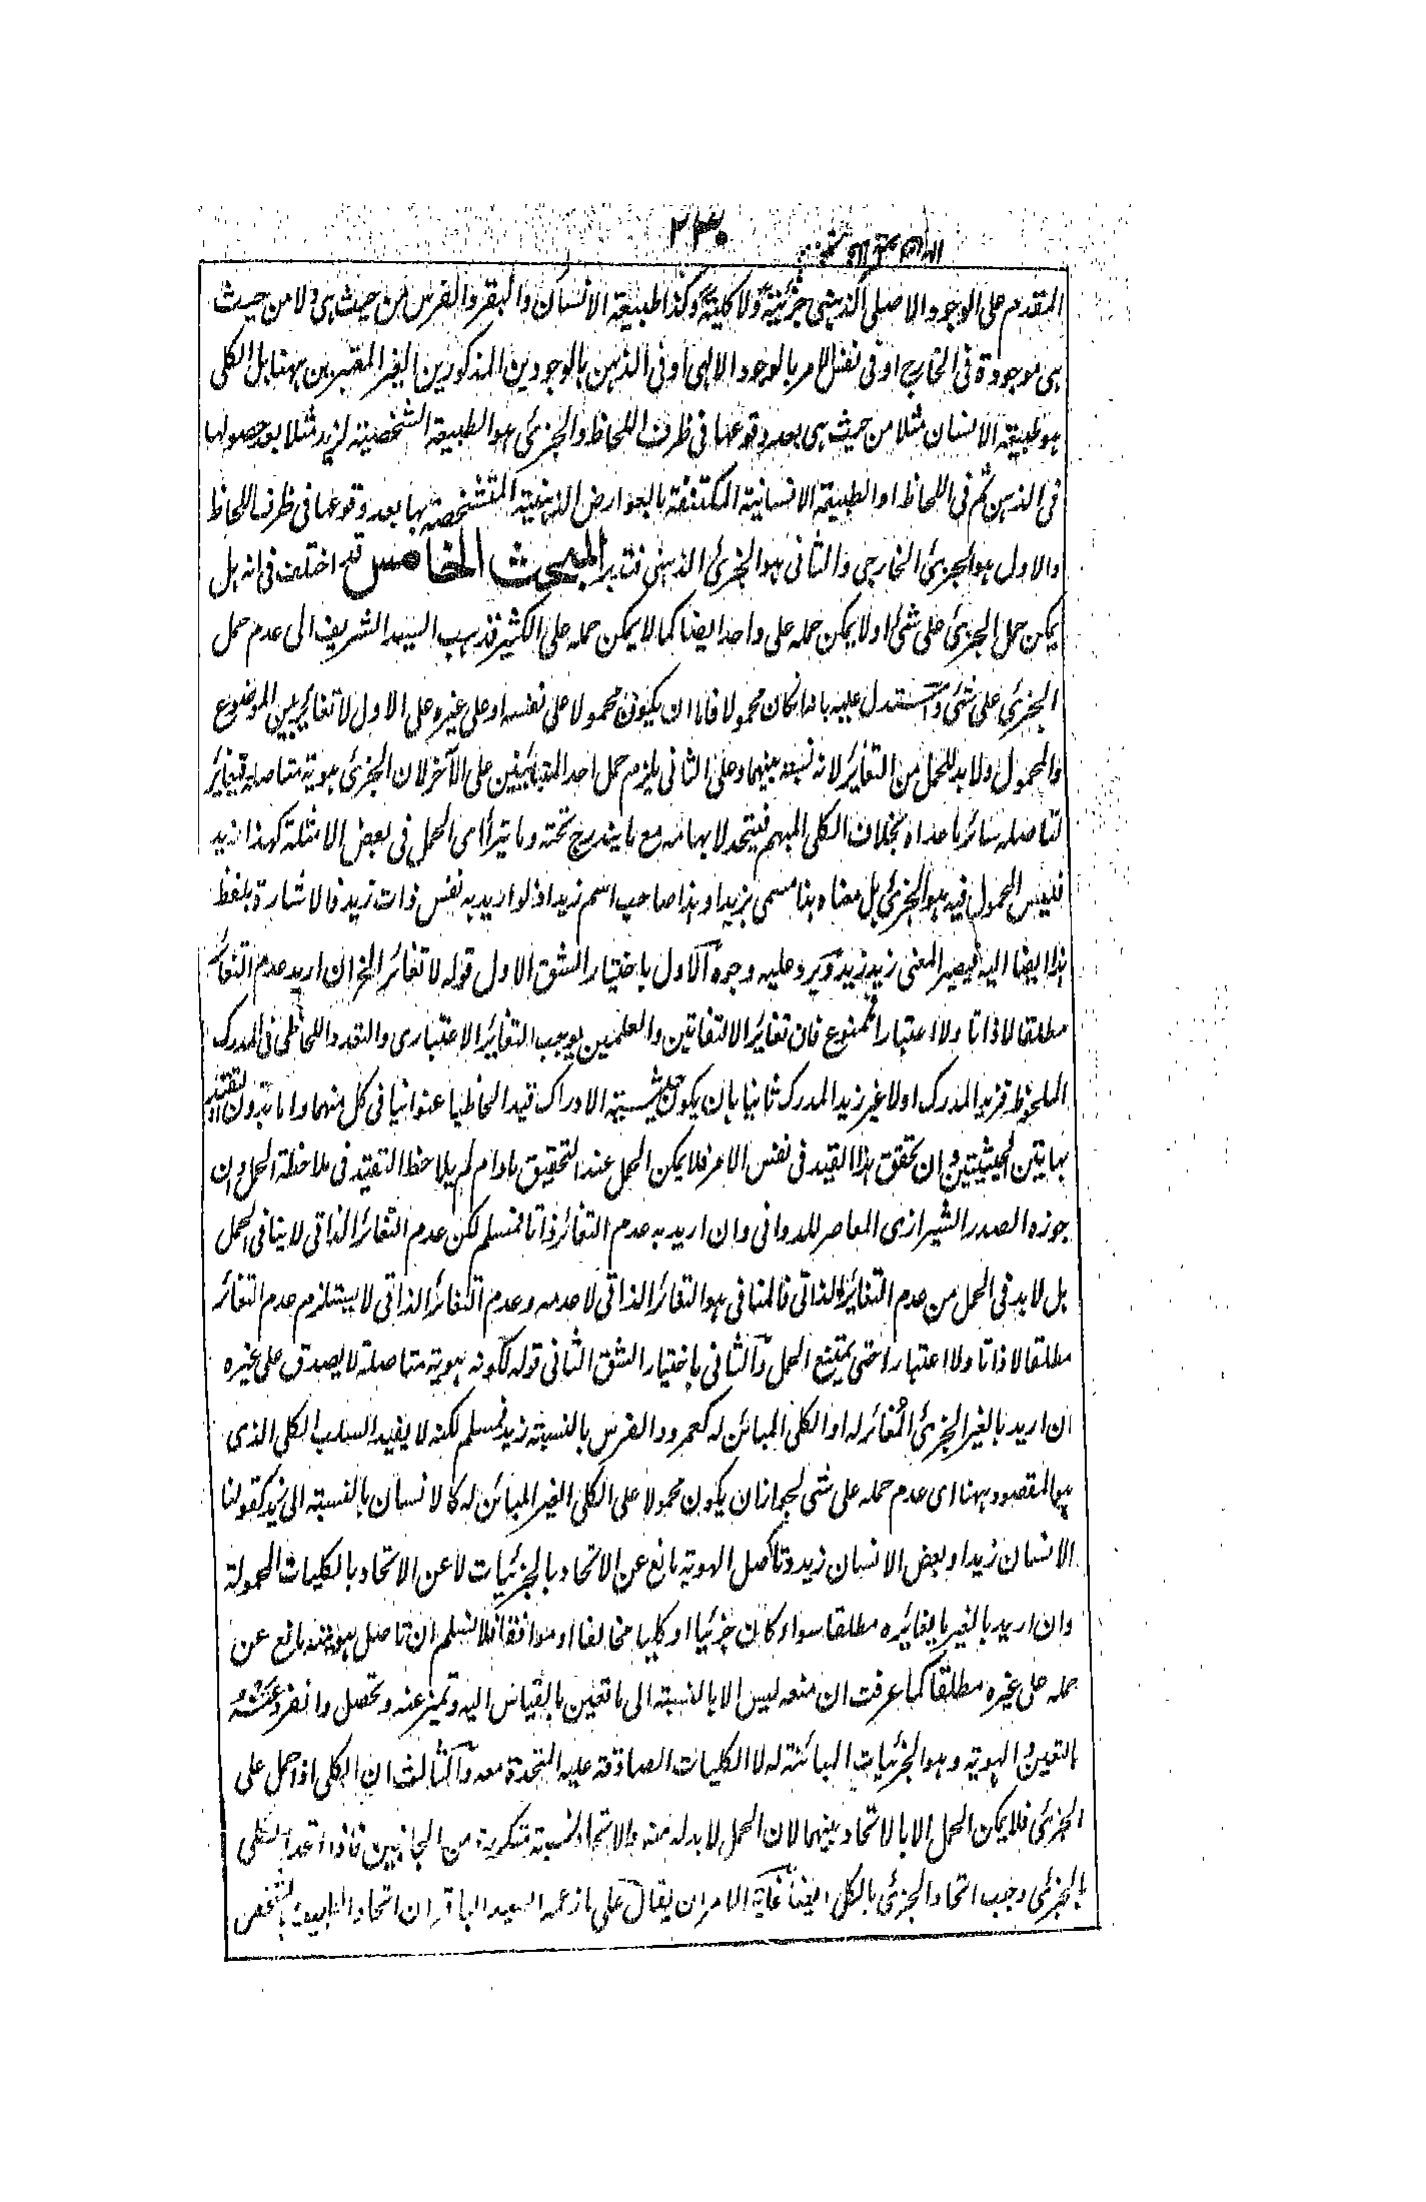 ٢٣٠
المقدم على الوجود الاصلى الذهنى جزئية ولا كلية وكذا طبيعة الانسان والبقر والفرس من حيث هى ولا من حيث
هى موجودة فى الخارج او فى نفس الامر بالوجود الالهى او فى الذهن بالوجودين المذكورين الغير المعتبرين ههنا بل الكلى
هو طبيعة الانسان مثلا من حيث هى بعد وقوعها فى ظرف اللحاظ والجزئى هو الطبيعة الشخصية لزيد مثلا بعد حصولها
فى الذهن ثم فى اللحاظ او الطبيعة الانسانية المكتنفة بالعوارض الذهنية المتشخصة بها بعد وقوعها فى ظرف اللحاظ
والاول هو الجزئى الخارجى والثانى هو الجزئى الذهنى فتدبر المبحث الخامس قد اختلف فى انه هل
يمكن حمل الجزئى على شئ او لا يمكن حمله على واحد ايضا كما لا يمكن حمله على الكثير فذهب السيد الشريف الى عدم حمل
الجزئى على شئ واستدل عليه بانه لو كان محمولا فاما ان يكون محمولا على نفسه او على غيره على الاول لا تغاير بين الموضوع
والمحمول ولا بد للحمل من التغائر لانه نسبة بينهما وعلى الثانى يلزم حمل احد المتبائنين على الآخر لان الجزئى هوية متاصلة تغائر
لتاصله سائر ما عداه بخلاف الكلى المبهم فيتحد لابهامه مع ما يندرج تحته وما يتراأى الحمل فى بعض الامثلة كهذا زيد
فليس المحمول فيه هو الجزئى بل معناه هذا مسمى بزيد او هذا صاحب اسم زيد اذ لو اريد به نفس ذات زيد فالاشارة بلفظ
هذا ايضا اليه فيصير المعنى زيد زيد ويرد عليه وجوه الاول باختيار الشق الاول قوله لا تغائر الخ ان اريد عدم التغائر
مطلقا لا ذاتا ولا اعتبارا فممنوع فان تغائر الالتفاتين والعلمين يوجب التغائر الاعتبارى والتعدد اللحاظى فى المدرك
الملحوظ فزيد المدرك اولا غير زيد المدرك ثانيا بان يكون حيثية الادراك قيدا لحاظيا عنوانيا فى كل منهما واما بدون التقيد
بهاتين الحيثيتين وان تحقق هذا القيد فى نفس الامر فلا يمكن الحمل عند التحقيق ما دام لم يلاحظ التقيد فى ملاحظة الحمل وان
جوزه الصدر الشيرازى المعاصر للدوانى وان اريد به عدم التغائر ذاتا فمسلم لكن عدم التغائر الذاتى لا ينافى الحمل
بل لا بد فى الحمل من عدم التغائر الذاتى فالمنافى هو التغائر الذاتى لا عدمه وعدم التغائر الذاتى لا يستلزم عدم التغائر
مطلقا لا ذاتا ولا اعتبارا حتى يمتنع الحمل والثانى باختيار الشق الثانى قوله لكونه هوية متاصلة لا يصدق على غيره
ان اريد بالغير الجزئى المغائر له او الكلى المبائن له كعمرو والفرس بالنسبة زيد فمسلم لكنه لا يفيد السلب الكلى الذى
هو المقصود ههنا اى عدم حمله على شئ لجواز ان يكون محمولا على الكلى الغير المبائن له كالانسان بالنسبة الى زيد كقولنا
الانسان زيد او بعض الانسان زيد وتاصل الهوية مانع عن الاتحاد بالجزئيات لا عن الاتحاد بالكليات المحمولة
وان اريد بالغير ما يغائره مطلقا سواء كان جزئيا او كليا مخالفا او موافقا فلا نسلم ان تاصل هويته مانع عن
حمله على غيره مطلقا كما عرفت ان منعه ليس الا بالنسبة الى ما تعين بالقياس اليه وتميز عنه وتحصل وانفرد عنه
بالتعين والهوية وهو الجزئيات المبائنة له لا الكليات الصادقة عليه المتحدة معه والثالث ان الكلى اذا حمل على
الجزئى فلا يمكن الحمل الا بالاتحاد بينهما لان الحمل لا بد له منه والاتحاد نسبة متكررة من الجانبين فاذا اتحد الكلى
بالجزئى وجب اتحاد الجزئى بالكلى ايضا غاية الامر ان يقال على ما زعمه السيد الباقر ان اتحاد الطبيعة بالشخص